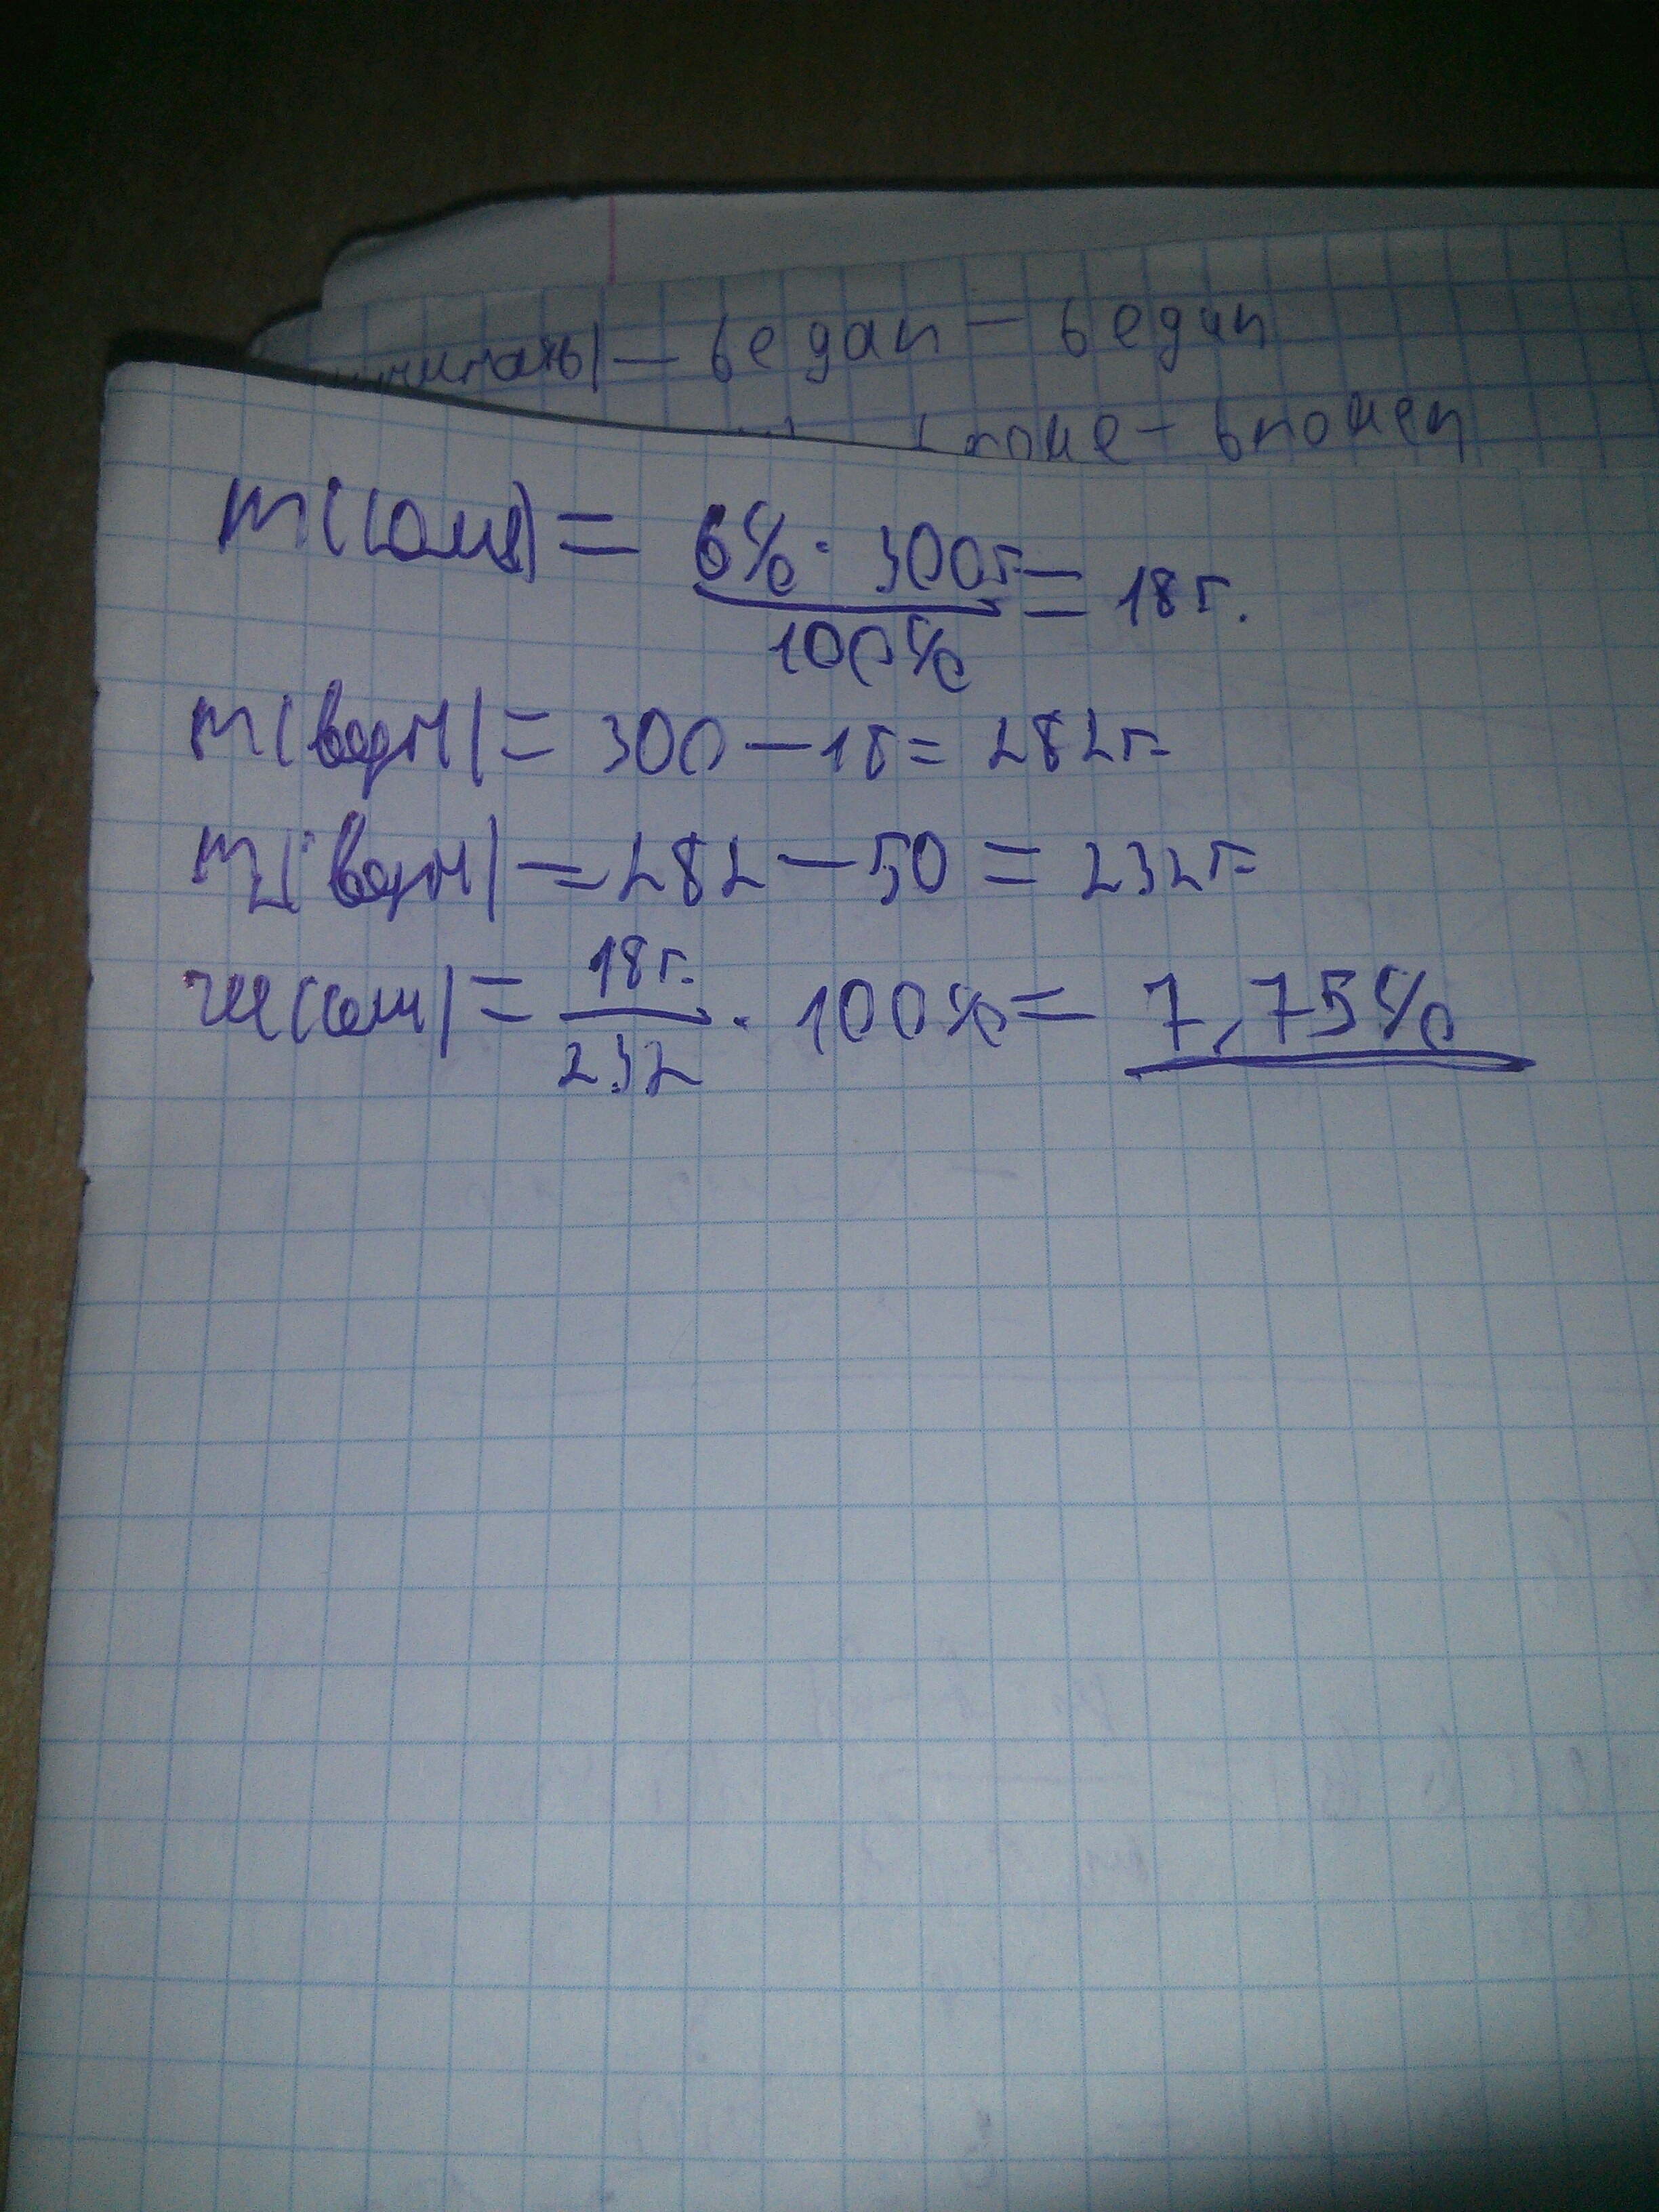 — ведан — ведип
m(соли) = 6% · 300г. / 100% = 18 г.
m(воды) = 300 — 18 = 282г.
m2(воды) = 282 — 50 = 232г.
w(соли) = 18г. / 232 · 100% = 7,75%